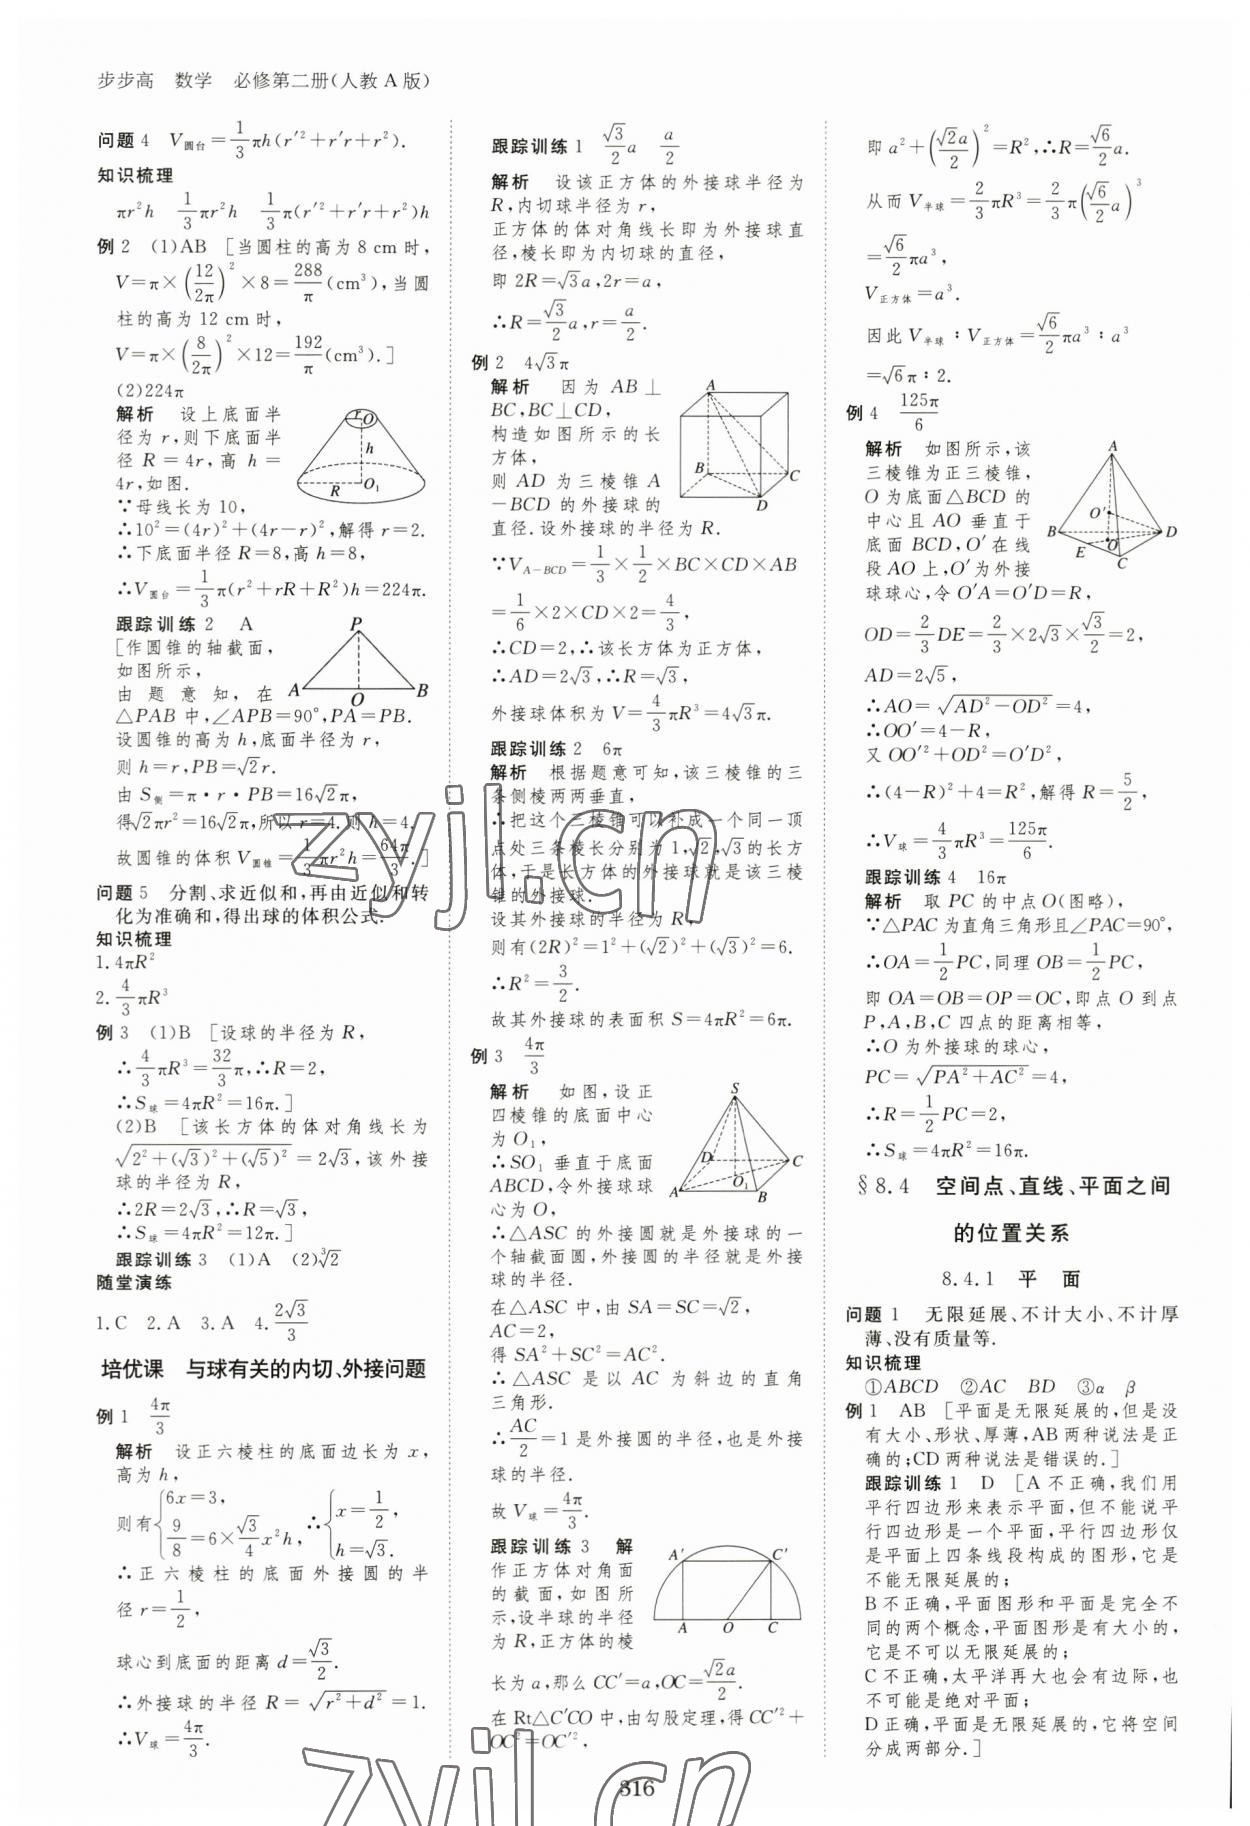 步步高 数学 必修第二册(人教 A 版)
问题 4 V圆台=1/3πh(r′²+r′r+r²).
知识梳理
πr²h 1/3πr²h 1/3π(r′²+r′r+r²)h
例 2 (1)AB [当圆柱的高为 8 cm 时,
V=π×(12/2π)²×8=288/π(cm³),当圆
柱的高为 12 cm 时,
V=π×(8/2π)²×12=192/π(cm³).]
(2)224π
解析 设上底面半
径为 r,则下底面半
径 R=4r,高 h=
4r,如图.
r O
h
R O₁
∵母线长为 10,
∴10²=(4r)²+(4r-r)²,解得 r=2.
∴下底面半径 R=8,高 h=8,
∴V圆台=1/3π(r²+rR+R²)h=224π.
跟踪训练 2 A
[作圆锥的轴截面,
如图所示,
由题意知,在
P
A O B
△PAB 中,∠APB=90°,PA=PB.
设圆锥的高为 h,底面半径为 r,
则 h=r,PB=√2r.
由 S侧=π·r·PB=16√2π,
得√2πr²=16√2π,所以 r=4.则 h=4.
故圆锥的体积 V圆锥=1/3πr²h=64π/3.]
问题 5 分割、求近似和,再由近似和转
化为准确和,得出球的体积公式.
知识梳理
1.4πR²
2.4/3πR³
例 3 (1)B [设球的半径为 R,
∴4/3πR³=32/3π,∴R=2,
∴S球=4πR²=16π.]
(2)B [该长方体的体对角线长为
√(2²+(√3)²+(√5)²)=2√3,该外接
球的半径为 R,
∴2R=2√3,∴R=√3,
∴S球=4πR²=12π.]
跟踪训练 3 (1)A (2)³√2
随堂演练
1.C 2.A 3.A 4.2√3/3
培优课 与球有关的内切、外接问题
例 1 4π/3
解析 设正六棱柱的底面边长为 x,
高为 h,
则有{6x=3, 9/8=6×√3/4x²h, ∴{x=1/2, h=√3.
∴正六棱柱的底面外接圆的半
径 r=1/2,
球心到底面的距离 d=√3/2.
∴外接球的半径 R=√(r²+d²)=1.
∴V球=4π/3.
跟踪训练 1 √3/2a a/2
解析 设该正方体的外接球半径为
R,内切球半径为 r,
正方体的体对角线长即为外接球直
径,棱长即为内切球的直径,
即 2R=√3a,2r=a,
∴R=√3/2a,r=a/2.
例 2 4√3π
解析 因为 AB⊥
BC,BC⊥CD,
构造如图所示的长
方体,
则 AD 为三棱锥 A
-BCD 的外接球的
A
B C
D
直径.设外接球的半径为 R.
∵V A-BCD=1/3×1/2×BC×CD×AB
=1/6×2×CD×2=4/3,
∴CD=2,∴该长方体为正方体,
∴AD=2√3,∴R=√3,
外接球体积为 V=4/3πR³=4√3π.
跟踪训练 2 6π
解析 根据题意可知,该三棱锥的三
条侧棱两两垂直,
∴把这个三棱锥可以补成一个同一顶
点处三条棱长分别为 1,√2,√3的长方
体,于是长方体的外接球就是该三棱
锥的外接球.
设其外接球的半径为 R,
则有(2R)²=1²+(√2)²+(√3)²=6.
∴R²=3/2.
故其外接球的表面积 S=4πR²=6π.
例 3 4π/3
解析 如图,设正
四棱锥的底面中心
为 O₁,
∴SO₁ 垂直于底面
ABCD,令外接球球
心为 O,
S
D C
O₁
A B
∴△ASC 的外接圆就是外接球的一
个轴截面圆,外接圆的半径就是外接
球的半径.
在△ASC 中,由 SA=SC=√2,
AC=2,
得 SA²+SC²=AC².
∴△ASC 是以 AC 为斜边的直角
三角形.
∴AC/2=1 是外接圆的半径,也是外接
球的半径.
故 V球=4π/3.
跟踪训练 3 解
作正方体对角面
的截面,如图所
示,设半球的半径
为 R,正方体的棱
A′ C′
A O C
长为 a,那么 CC′=a,OC=√2a/2.
在 Rt△C′CO 中,由勾股定理,得 CC′²+
OC²=OC′²,
即 a²+(√2a/2)²=R²,∴R=√6/2a.
从而 V半球=2/3πR³=2/3π(√6/2a)³
=√6/2πa³,
V正方体=a³.
因此 V半球∶V正方体=√6/2πa³∶a³
=√6π∶2.
例 4 125π/6
解析 如图所示,该
三棱锥为正三棱锥,
O 为底面△BCD 的
中心且 AO 垂直于
底面 BCD,O′在线
段 AO 上,O′为外接
球球心,令 O′A=O′D=R,
A
O′
B D
E O
C
OD=2/3DE=2/3×2√3×√3/2=2,
AD=2√5,
∴AO=√(AD²-OD²)=4,
∴OO′=4-R,
又 OO′²+OD²=O′D²,
∴(4-R)²+4=R²,解得 R=5/2,
∴V球=4/3πR³=125π/6.
跟踪训练 4 16π
解析 取 PC 的中点 O(图略),
∵△PAC 为直角三角形且∠PAC=90°,
∴OA=1/2PC,同理 OB=1/2PC,
即 OA=OB=OP=OC,即点 O 到点
P,A,B,C 四点的距离相等,
∴O 为外接球的球心,
PC=√(PA²+AC²)=4,
∴R=1/2PC=2,
∴S球=4πR²=16π.
§8.4 空间点、直线、平面之间
的位置关系
8.4.1 平 面
问题 1 无限延展、不计大小、不计厚
薄、没有质量等.
知识梳理
①ABCD ②AC BD ③α β
例 1 AB [平面是无限延展的,但是没
有大小、形状、厚薄,AB 两种说法是正
确的;CD 两种说法是错误的.]
跟踪训练 1 D [A 不正确,我们用
平行四边形来表示平面,但不能说平
行四边形是一个平面,平行四边形仅
是平面上四条线段构成的图形,它是
不能无限延展的;
B 不正确,平面图形和平面是完全不
同的两个概念,平面图形是有大小的,
它是不可以无限延展的;
C 不正确,太平洋再大也会有边际,也
不可能是绝对平面;
D 正确,平面是无限延展的,它将空间
分成两部分.]
316
zyjl.cn
zyjl.cn